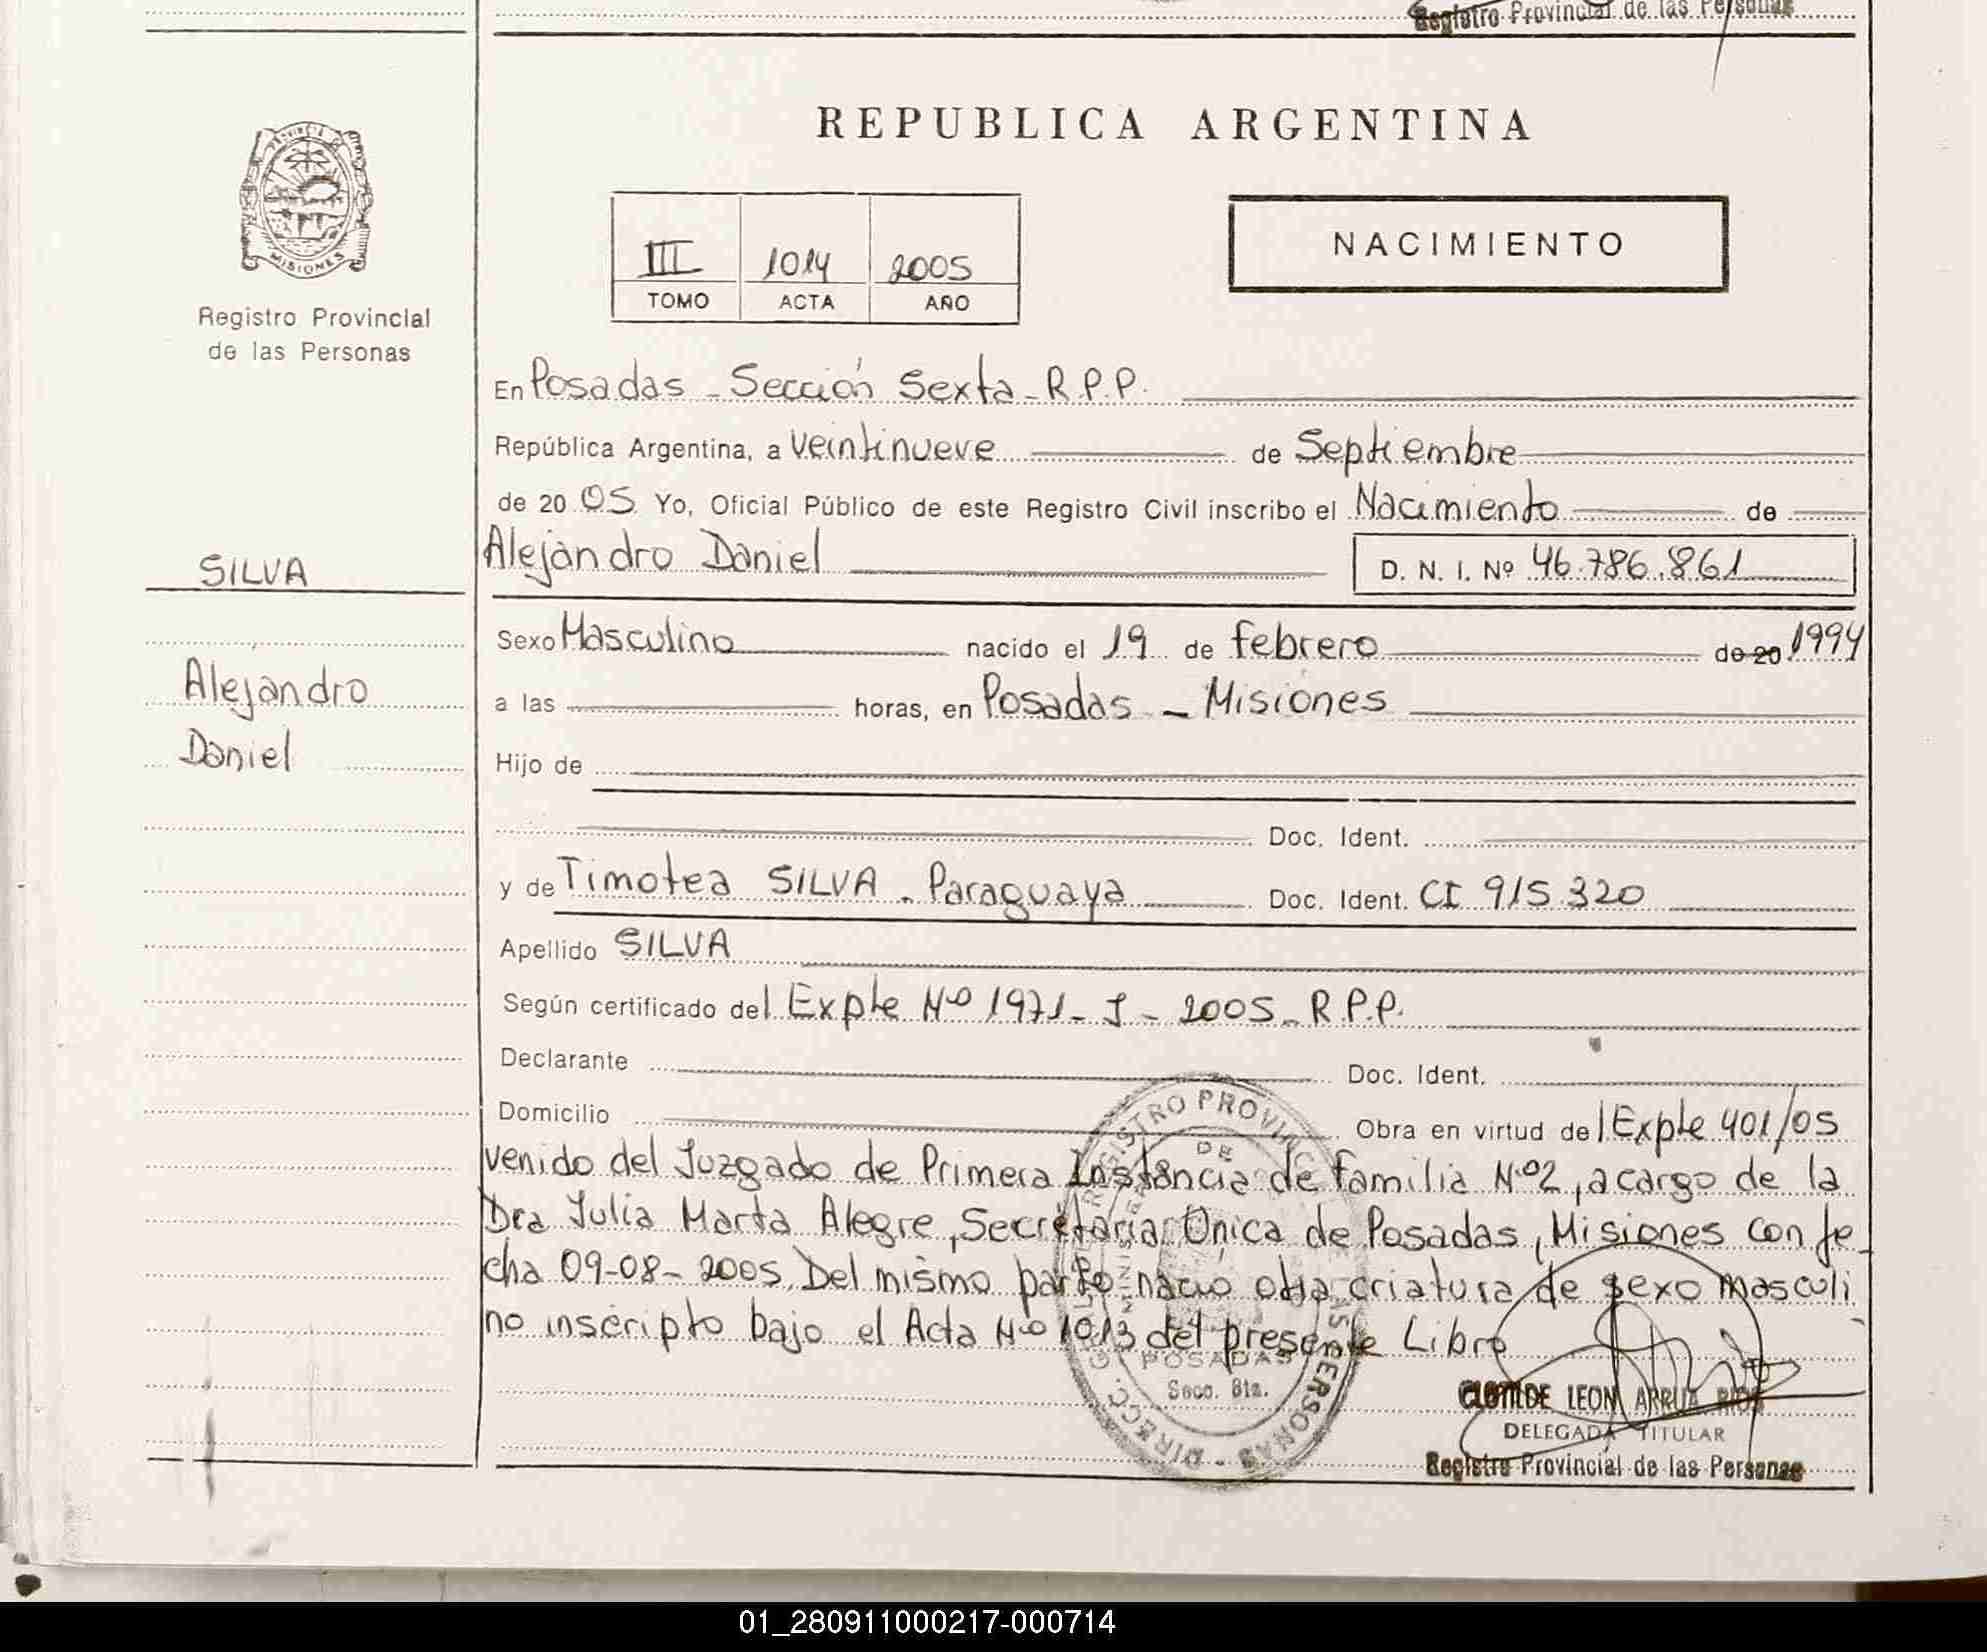 Registro Provincial de las Personas
REPUBLICA ARGENTINA
PROVINCIA DE
MISIONES
Registro Provincial
de las Personas
III 1014 2005
TOMO ACTA AÑO
NACIMIENTO
En Posadas - Sección Sexta - R.P.P.
República Argentina, a veintinueve de Septiembre
de 20 05 Yo, Oficial Público de este Registro Civil inscribo el Nacimiento de
Alejandro Daniel D. N. I. Nº 46.786.861
SILVA
Alejandro
Daniel
Sexo Masculino nacido el 19 de febrero de 20 1994
a las horas, en Posadas - Misiones
Hijo de
Doc. Ident.
y de Timotea SILVA - Paraguaya Doc. Ident. CI 915.320
Apellido SILVA
Según certificado del Expte Nº 1971 - J - 2005 - R.P.P.
Declarante Doc. Ident.
Domicilio Obra en virtud del Expte 401/05
venido del Juzgado de Primera Instancia de familia Nº2, a cargo de la
Dra Julia Marta Alegre, Secretaria Única de Posadas, Misiones con fe-
cha 09-08-2005. Del mismo parto nacio otra criatura de sexo masculi
no inscripto bajo el Acta Nº 1013 del presente Libro
POSADAS
Secc. 6ta.
CLOTILDE LEON ARRUA RIOS
DELEGADA TITULAR
Registro Provincial de las Personas
01_280911000217-000714